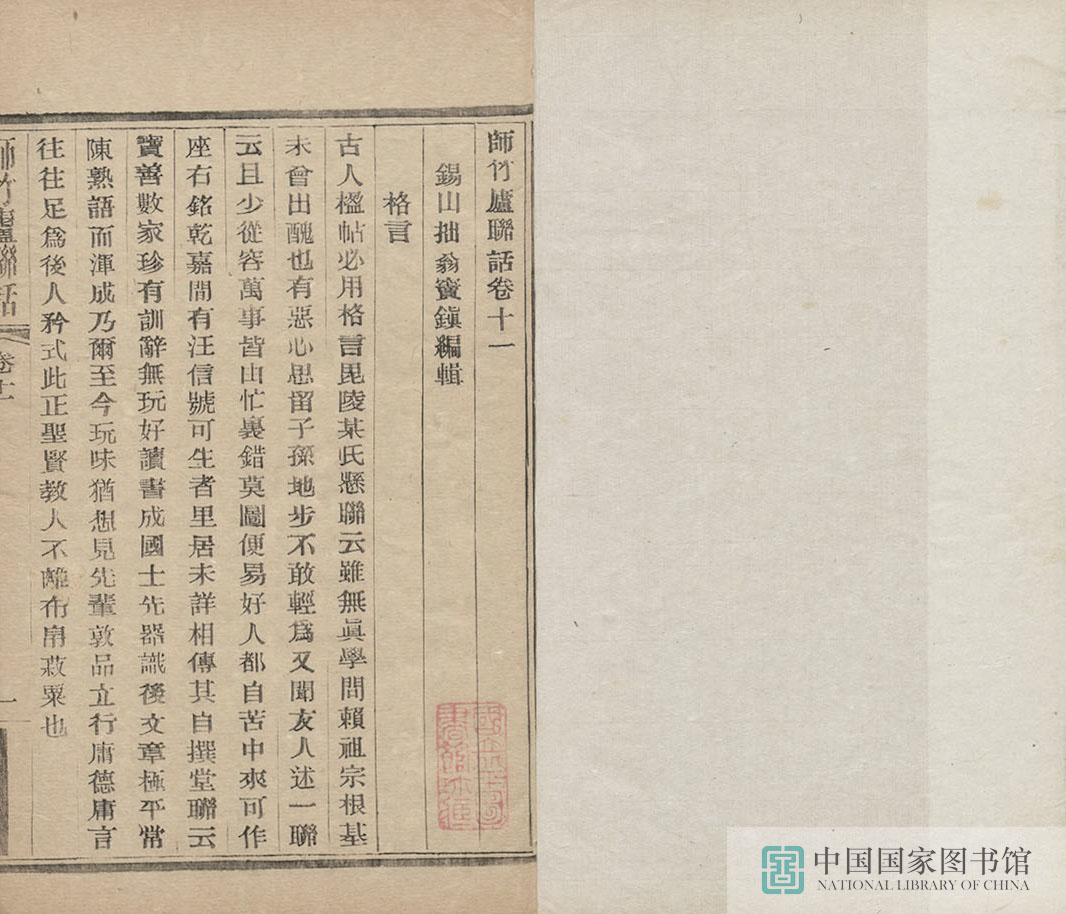 師竹廬聯話卷十一
錫山拙翁竇鎮編輯
格言
古人楹帖必用格言毘陵某氏懸聯云雖無眞學問賴祖宗根基
未曾出醜也有惡心思留子孫地步不敢輕爲又聞友人述一聯
云且少從容萬事皆由忙裏錯莫圖便易好人都自苦中來可作
座右銘乾嘉間有汪信號可生者里居未詳相傳其自撰堂聯云
寶善數家珍有訓辭無玩好讀書成國士先器識後文章極平常
陳熟語而渾成乃爾至今玩味猶想見先輩敦品立行庸德庸言
往往足爲後人矜式此正聖賢教人不離布帛菽粟也
師竹廬聯話
卷十一
一
中国国家图书馆
NATIONAL LIBRARY OF CHINA